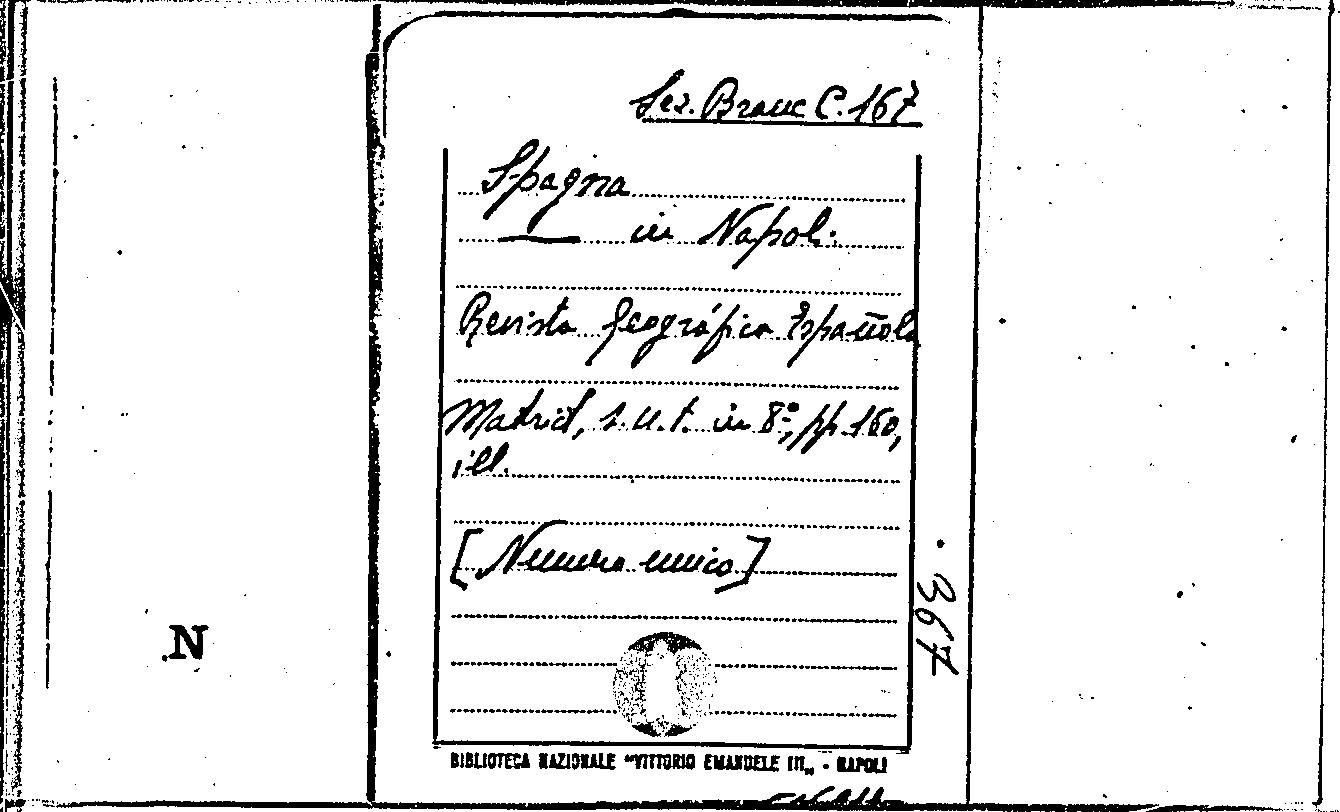 Sez. Branc C. 167
Spagna
in Napoli
Revista Geográfica Española
Madrid, s.u.t. in 8º, pp. 160,
ill.
[Numero unico]
367
N
BIBLIOTECA NAZIONALE "VITTORIO EMANUELE III„ - NAPOLI